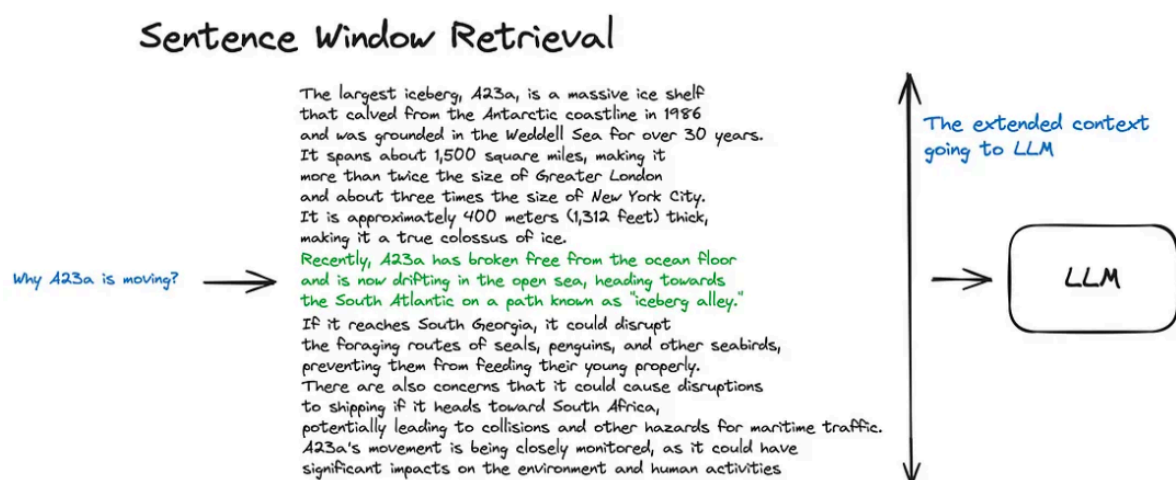 Sentence Window Retrieval
The largest iceberg, A23a, is a massive ice shelf
that calved from the Antarctic coastline in 1986
and was grounded in the Weddell Sea for over 30 years.
It spans about 1,500 square miles, making it
more than twice the size of Greater London
and about three times the size of New York City.
It is approximately 400 meters (1,312 feet) thick,
making it a true colossus of ice.
Recently, A23a has broken free from the ocean floor
and is now drifting in the open sea, heading towards
the South Atlantic on a path known as "iceberg alley."
If it reaches South Georgia, it could disrupt
the foraging routes of seals, penguins, and other seabirds,
preventing them from feeding their young properly.
There are also concerns that it could cause disruptions
to shipping if it heads toward South Africa,
potentially leading to collisions and other hazards for maritime traffic.
A23a's movement is being closely monitored, as it could have
significant impacts on the environment and human activities
Why A23a is moving?
The extended context
going to LLM
LLM